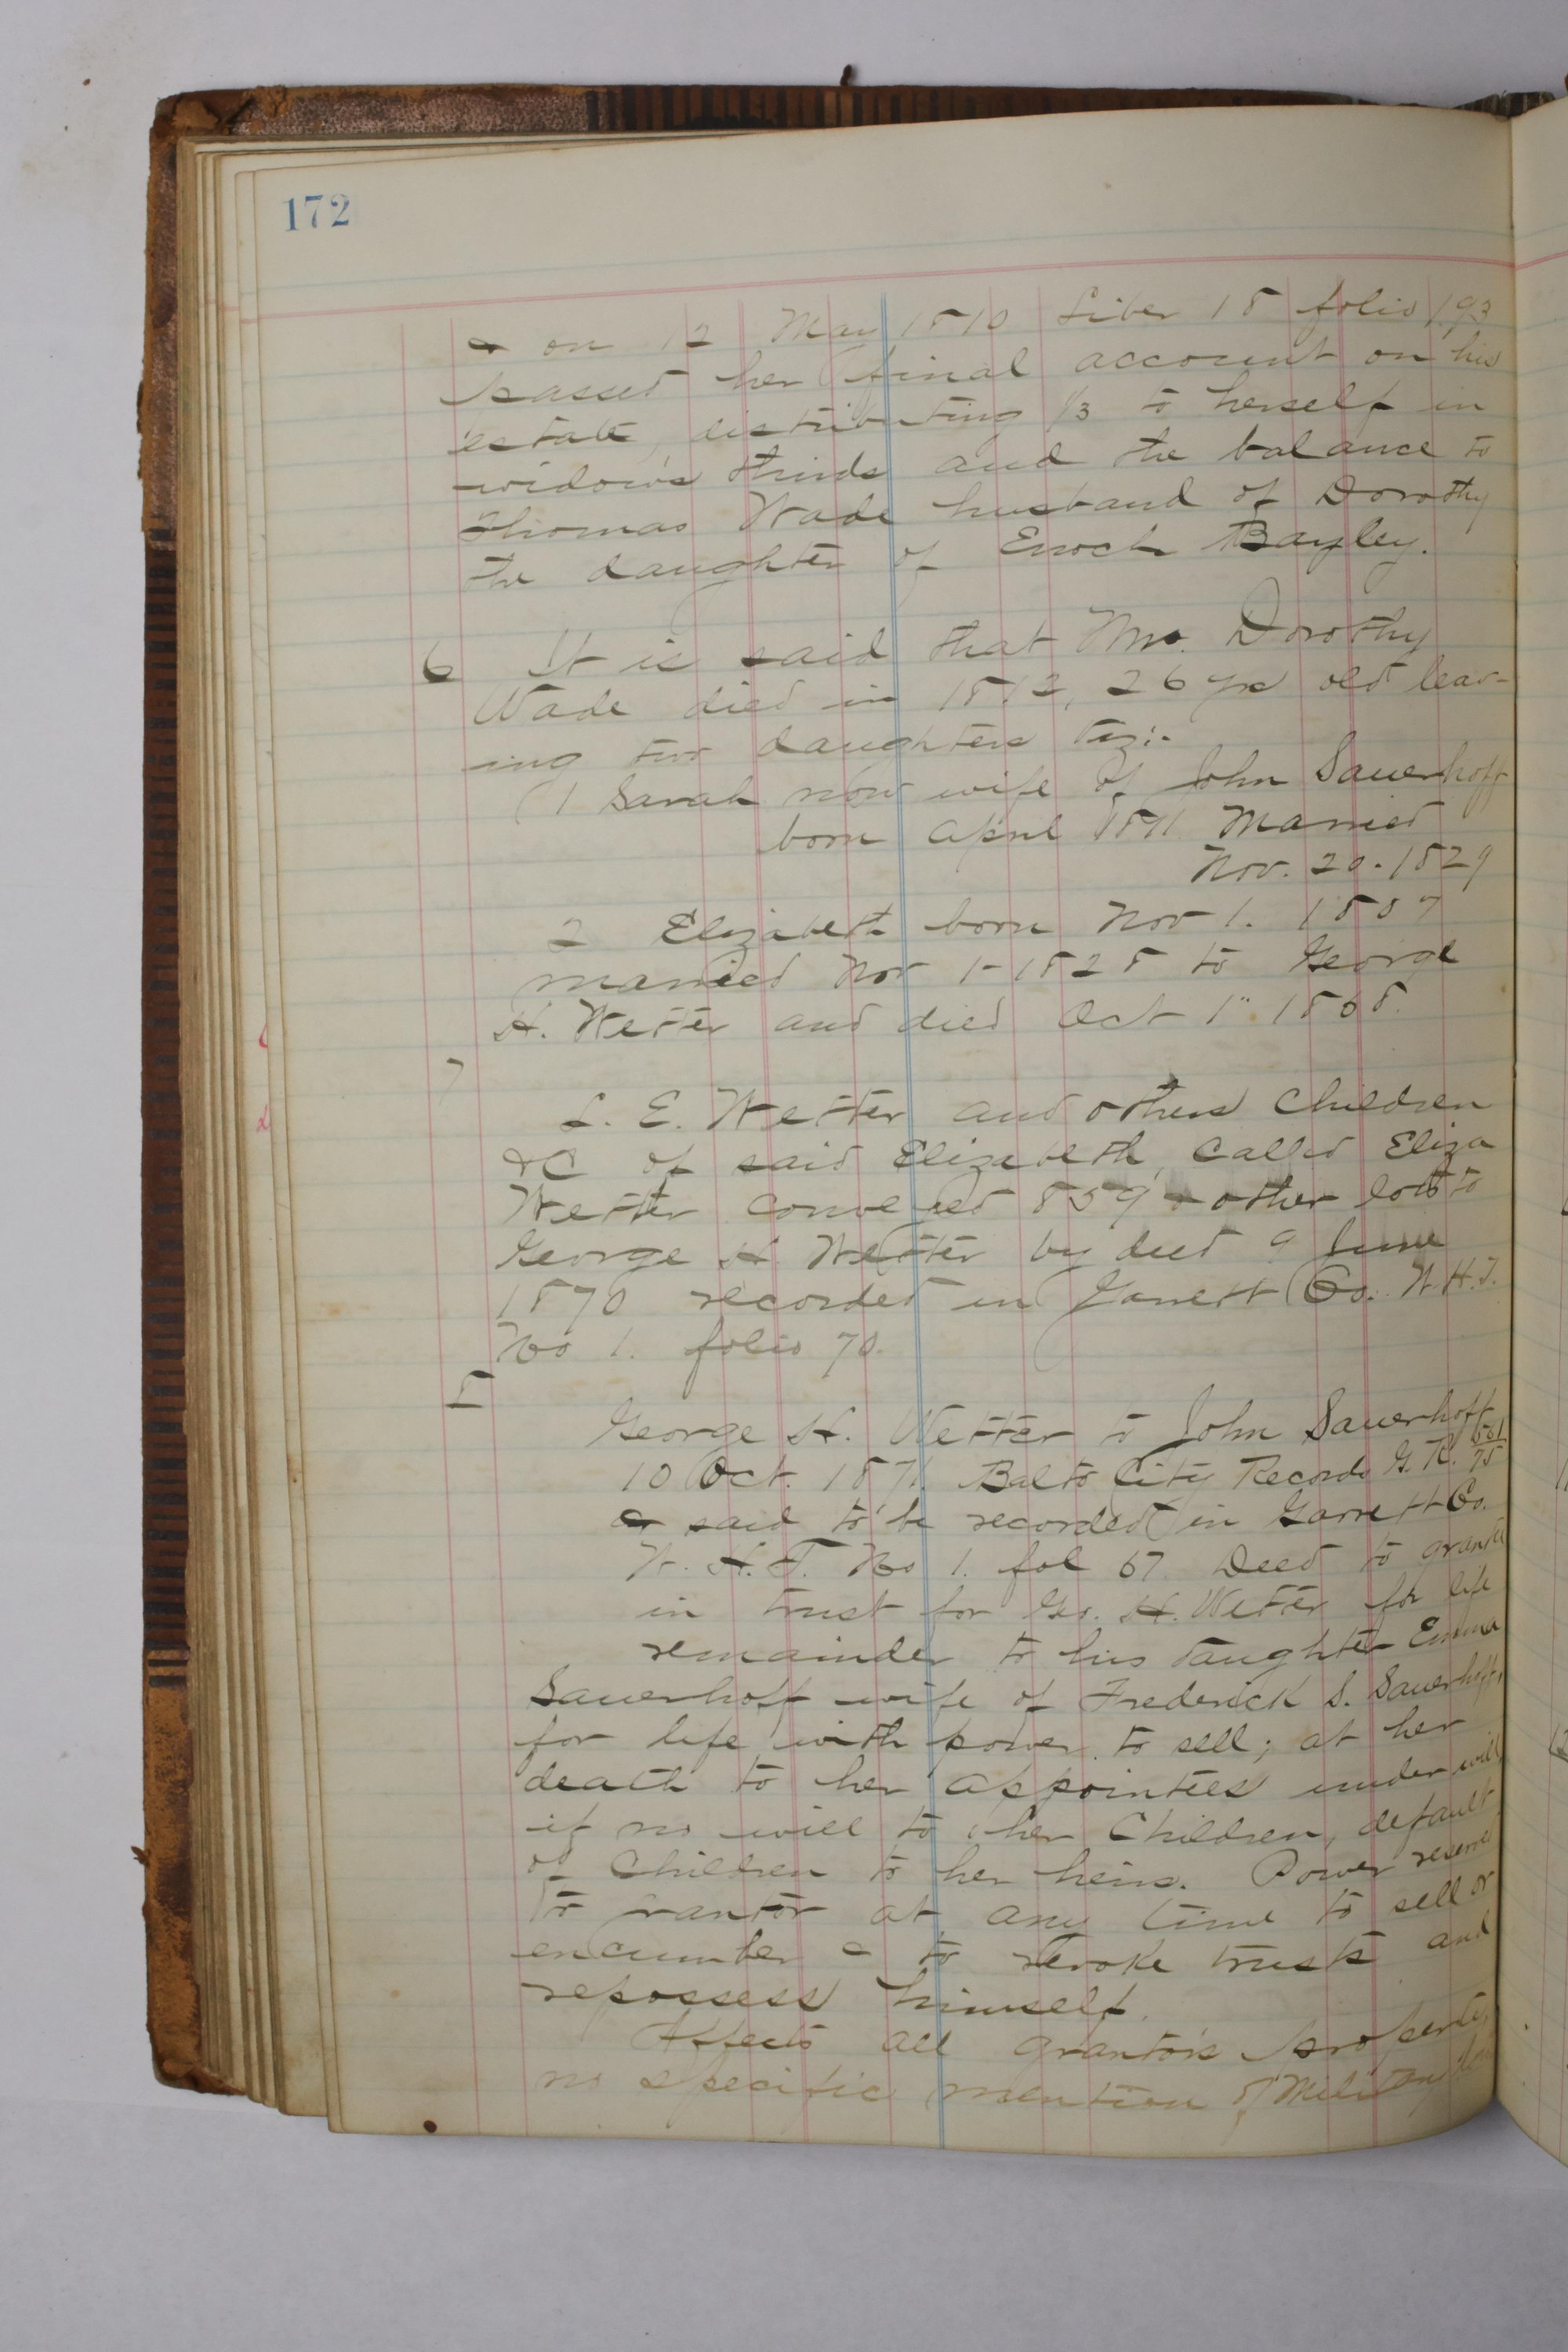 172
& on 12 May 1810 Liber 18 folio 193
passed her final account on his
estate, distributing 1/3 to herself in
widow's thirds and the balance to
Thomas Wade husband of Dorothy
the daughter of Enoch Bayley.
6 It is said that Mrs. Dorothy
Wade died in 1812, 26 yrs old leav-
ing two daughters viz:-
(1 Sarah now wife of John Sauerhoff
born April 1811 Married
Nov. 20. 1829
2 Elizabeth born Nov 1. 1807
married Nov 1 - 1828 to George
H. Wetter and died Oct 1" 1868.
7
L. E. Wetter and others Children
&C of said Elizabeth, called Eliza
Wetter conveyed 859 & other lots to
George H Wetter by deed 9 June
1870 recorded in Garrett Co. W.H.T.
No 1. folio 70.
8
George H. Wetter to John Sauerhoff
10 Oct. 1871. Balto City Records G. R. 561/75
& said to be recorded in Garrett Co.
W. H. T. No 1. fol 67 Deed to grantee
in trust for Geo. H. Wetter for life
remainder to his daughter Emma
Sauerhoff wife of Frederick S. Sauerhoff,
for life with power to sell; at her
death to her appointees under will,
if no will to her Children, default
of Children to her heirs. Power reserved
to rantor at any time to sell or
encumber & to revoke trusts and
repossess himself.
Affects all grantor's property,
no specific mention of Military